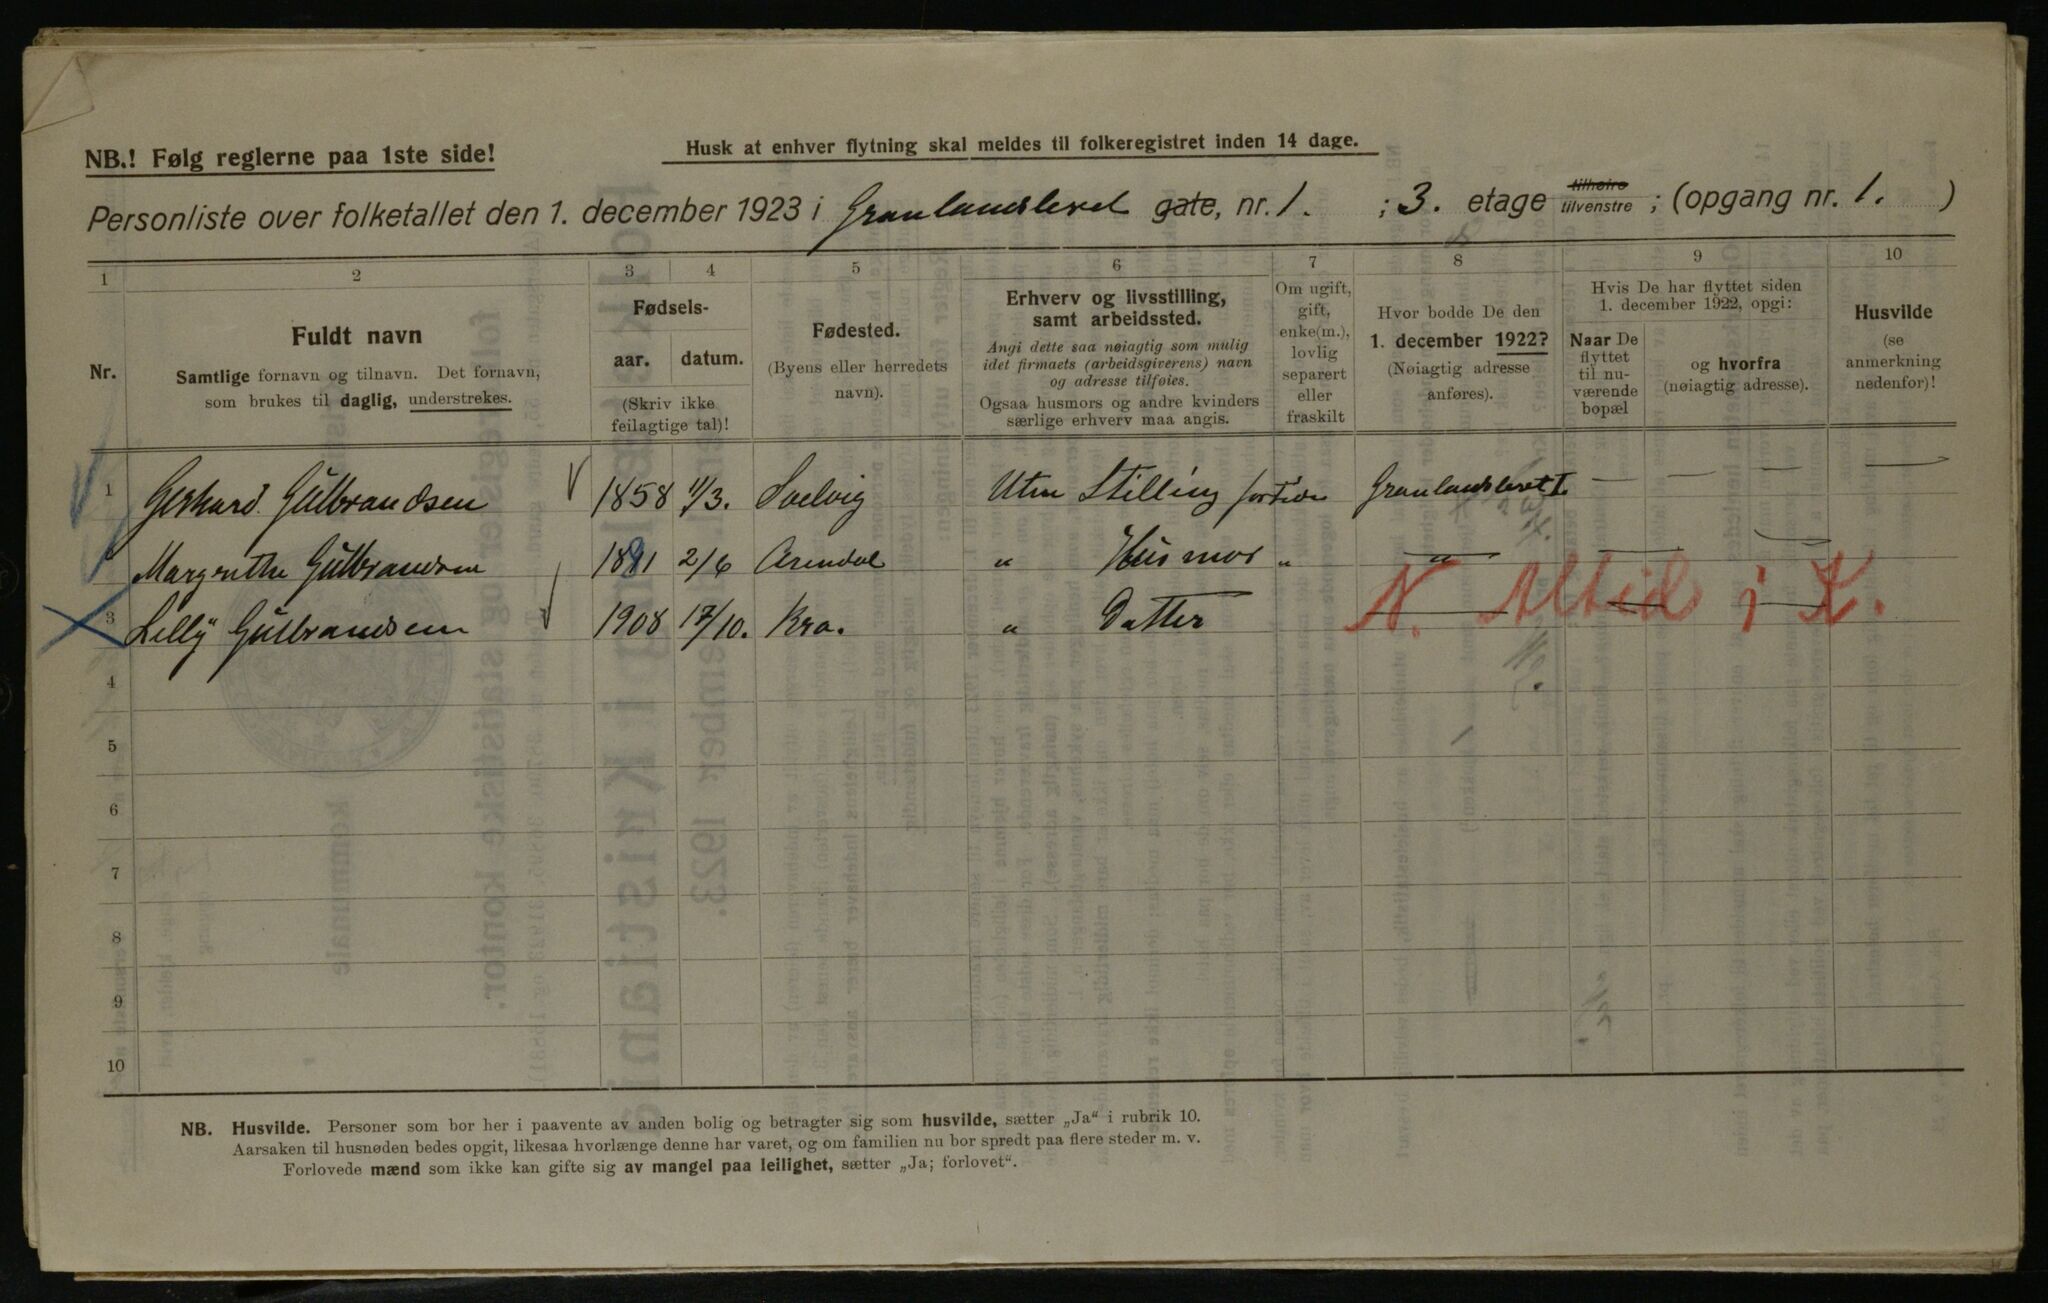 NB.! Følg reglerne paa 1ste side!
Husk at enhver flytning skal meldes til folkeregistret inden 14 dage.
Personliste over folketallet den 1. december 1923 i Grønlandsleret gate, nr. 1. ; 3. etage tilhøire tilvenstre ; (opgang nr. 1. )
1 2 3 4 5 6 7 8 9 10
Nr.
Fuldt navn
Samtlige fornavn og tilnavn. Det fornavn,
som brukes til daglig, understrekes.
Fødsels-
aar. datum.
(Skriv ikke
feilagtige tal)!
Fødested.
(Byens eller herredets
navn).
Erhverv og livsstilling,
samt arbeidssted.
Angi dette saa nøiagtig som mulig
idet firmaets (arbeidsgiverens) navn
og adresse tilføies.
Ogsaa husmors og andre kvinders
særlige erhverv maa angis.
Om ugift,
gift,
enke(m.),
lovlig
separert
eller
fraskilt
Hvor bodde De den
1. december 1922?
(Nøiagtig adresse
anføres).
Hvis De har flyttet siden
1. december 1922, opgi:
Naar De
flyttet
til nu-
værende
bopæl
og hvorfra
(nøiagtig adresse).
Husvilde
(se
anmerkning
nedenfor)!
1 Gerhard Gulbrandsen 1858 11/3. Svelvig Uten Stilling for tiden Grønlandsleret 1. — — — —
Margrethe Gulbrandsen 1881 2/6 Arendal " Husmor " "
3 Lilly Gulbrandsen 1908 17/10. Kra. " Datter
N. Altid i K.
4
5
6
7
8
9
10
NB. Husvilde. Personer som bor her i paavente av anden bolig og betragter sig som husvilde, sætter „Ja“ i rubrik 10.
Aarsaken til husnøden bedes opgit, likesaa hvorlænge denne har varet, og om familien nu bor spredt paa flere steder m. v.
Forlovede mænd som ikke kan gifte sig av mangel paa leilighet, sætter „Ja; forlovet“.